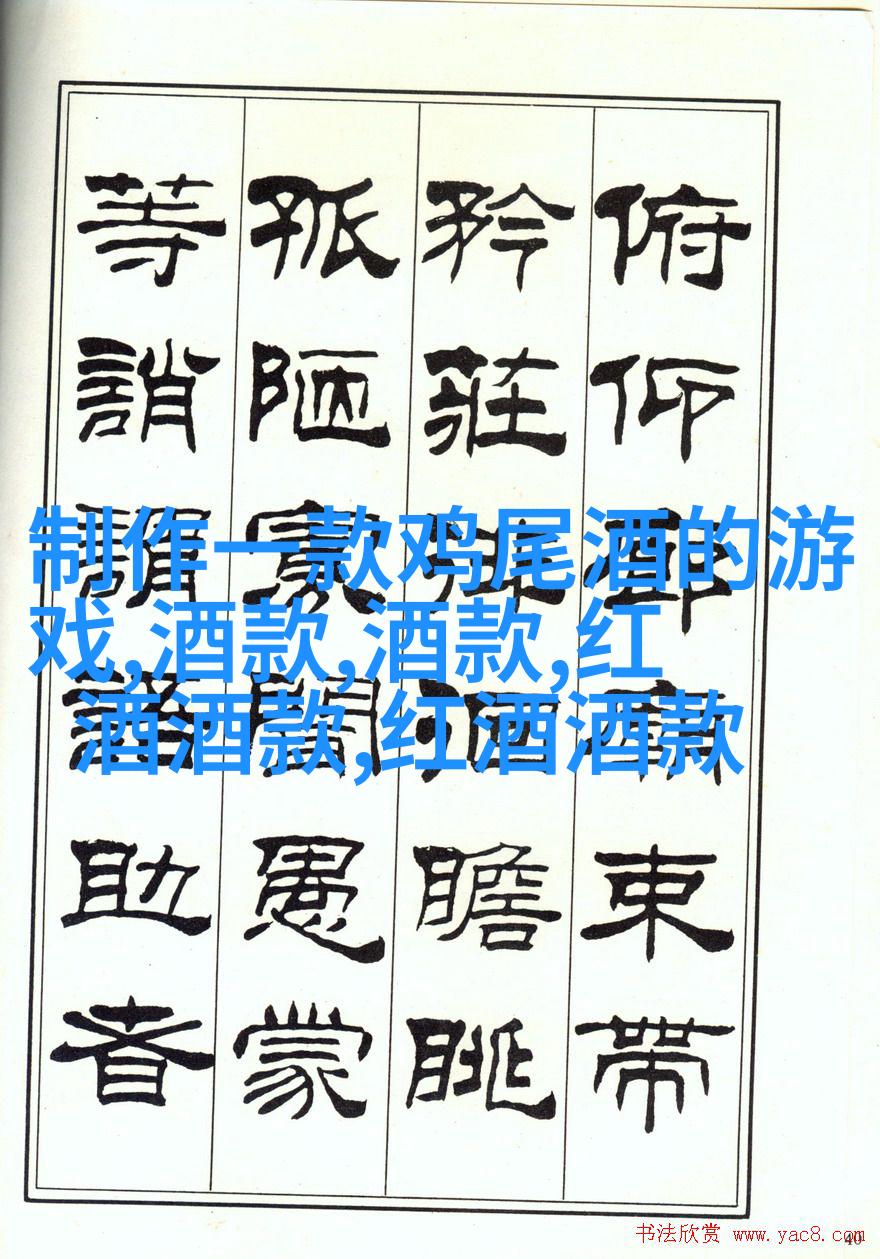 俯仰廊廟束帶
矜莊徘徊瞻眺
孤陋寡聞愚蒙
等誚謂語助者
制作一款鸡尾酒的游
戏,酒款,酒款,红
酒酒款,红酒酒款
书法欣赏 www.yac8.com
40